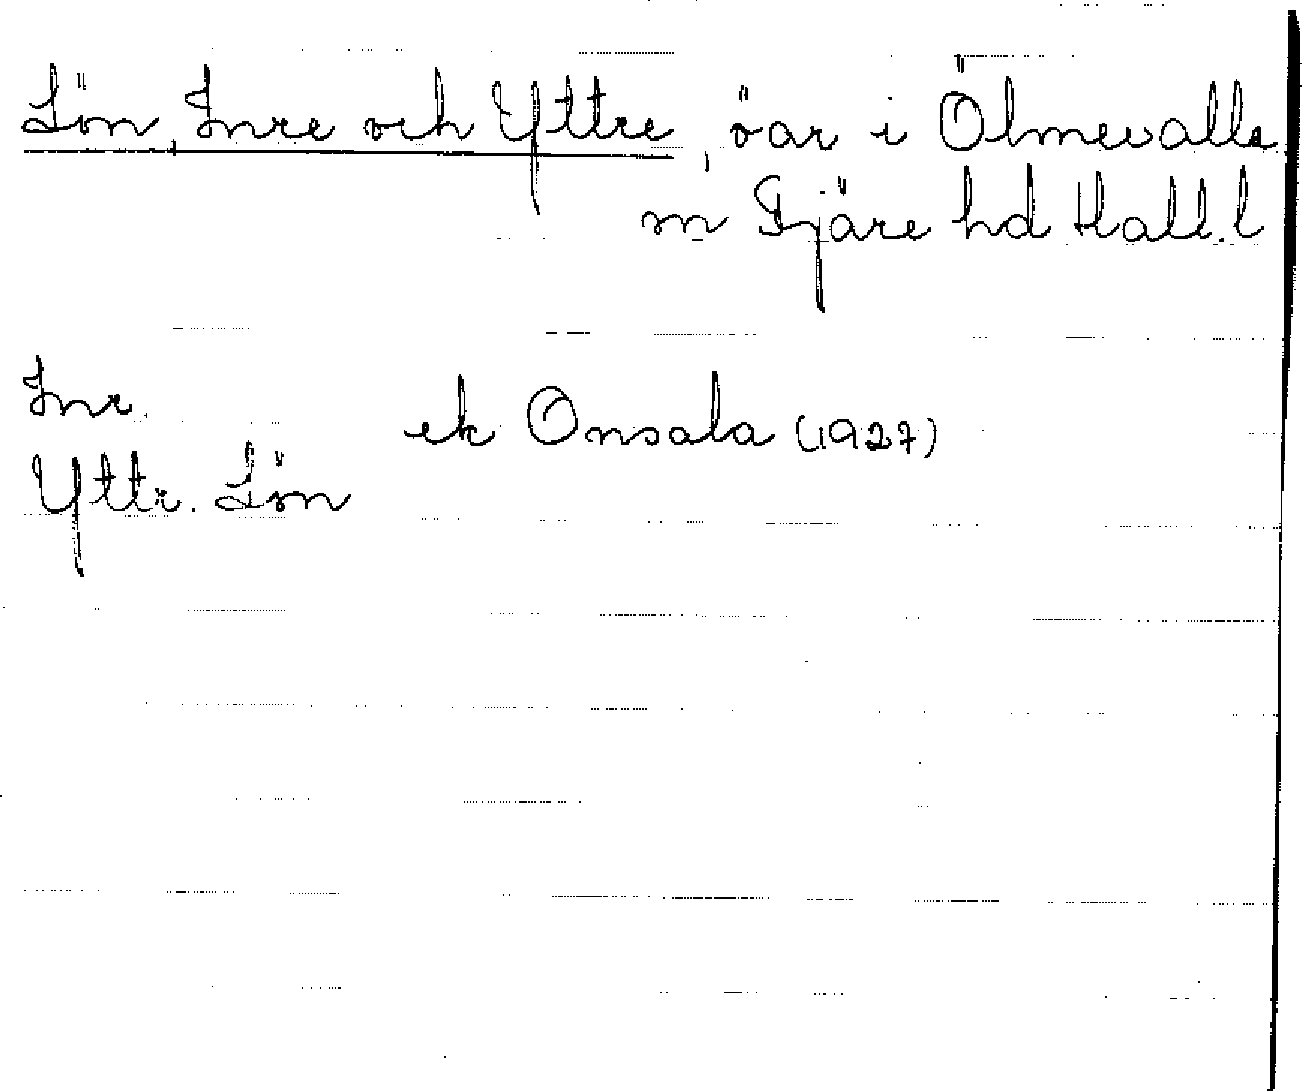 Lön, Inre och Yttre, öar i Ölmevalla
sn Fjäre hd Hall. l
Inr.
ek Onsala (1927)
Yttr. Lön